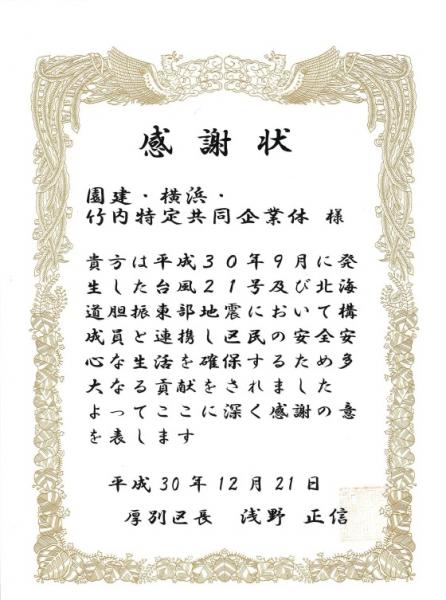 感謝状
園建・横浜・
竹内特定共同企業体 様
貴方は平成30年9月に発
生した台風21号及び北海
道胆振東部地震において構
成員と連携し区民の安全安
心な生活を確保するため多
大なる貢献をされました
よってここに深く感謝の意
を表します
平成30年12月21日
厚別区長 浅野 正信